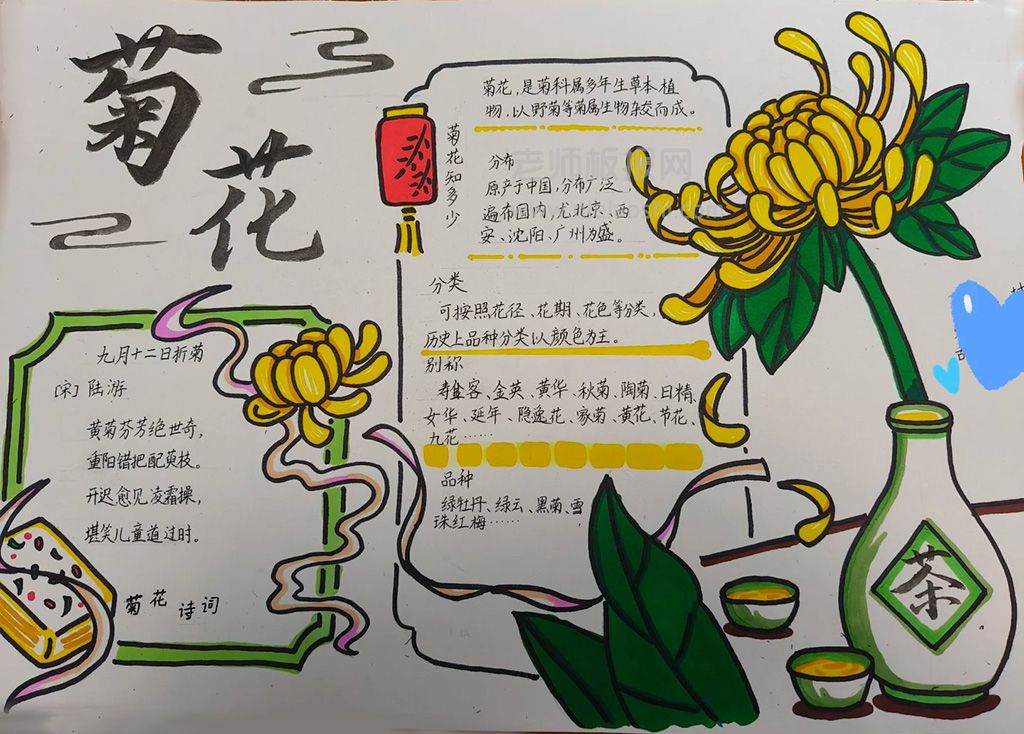 菊
花
九月十二日折菊
[宋] 陆游
黄菊芬芳绝世奇，
重阳错把配萸枝。
开迟愈见凌霜操，
堪笑儿童道过时。
菊花诗词
菊花知多少
菊花，是菊科属多年生草本植
物，以野菊等菊属生物杂交而成。
分布
原产于中国，分布广泛，
遍布国内，尤北京、西
安、沈阳、广州为盛。
分类
可按照花径、花期、花色等分类，
历史上品种分类以颜色为主。
别称
寿客、金英、黄华、秋菊、陶菊、日精、
女华、延年、隐逸花、家菊、黄花、节花、
九花……
品种
绿牡丹、绿云、黑菊、雪
珠红梅……
茶
老师板报网